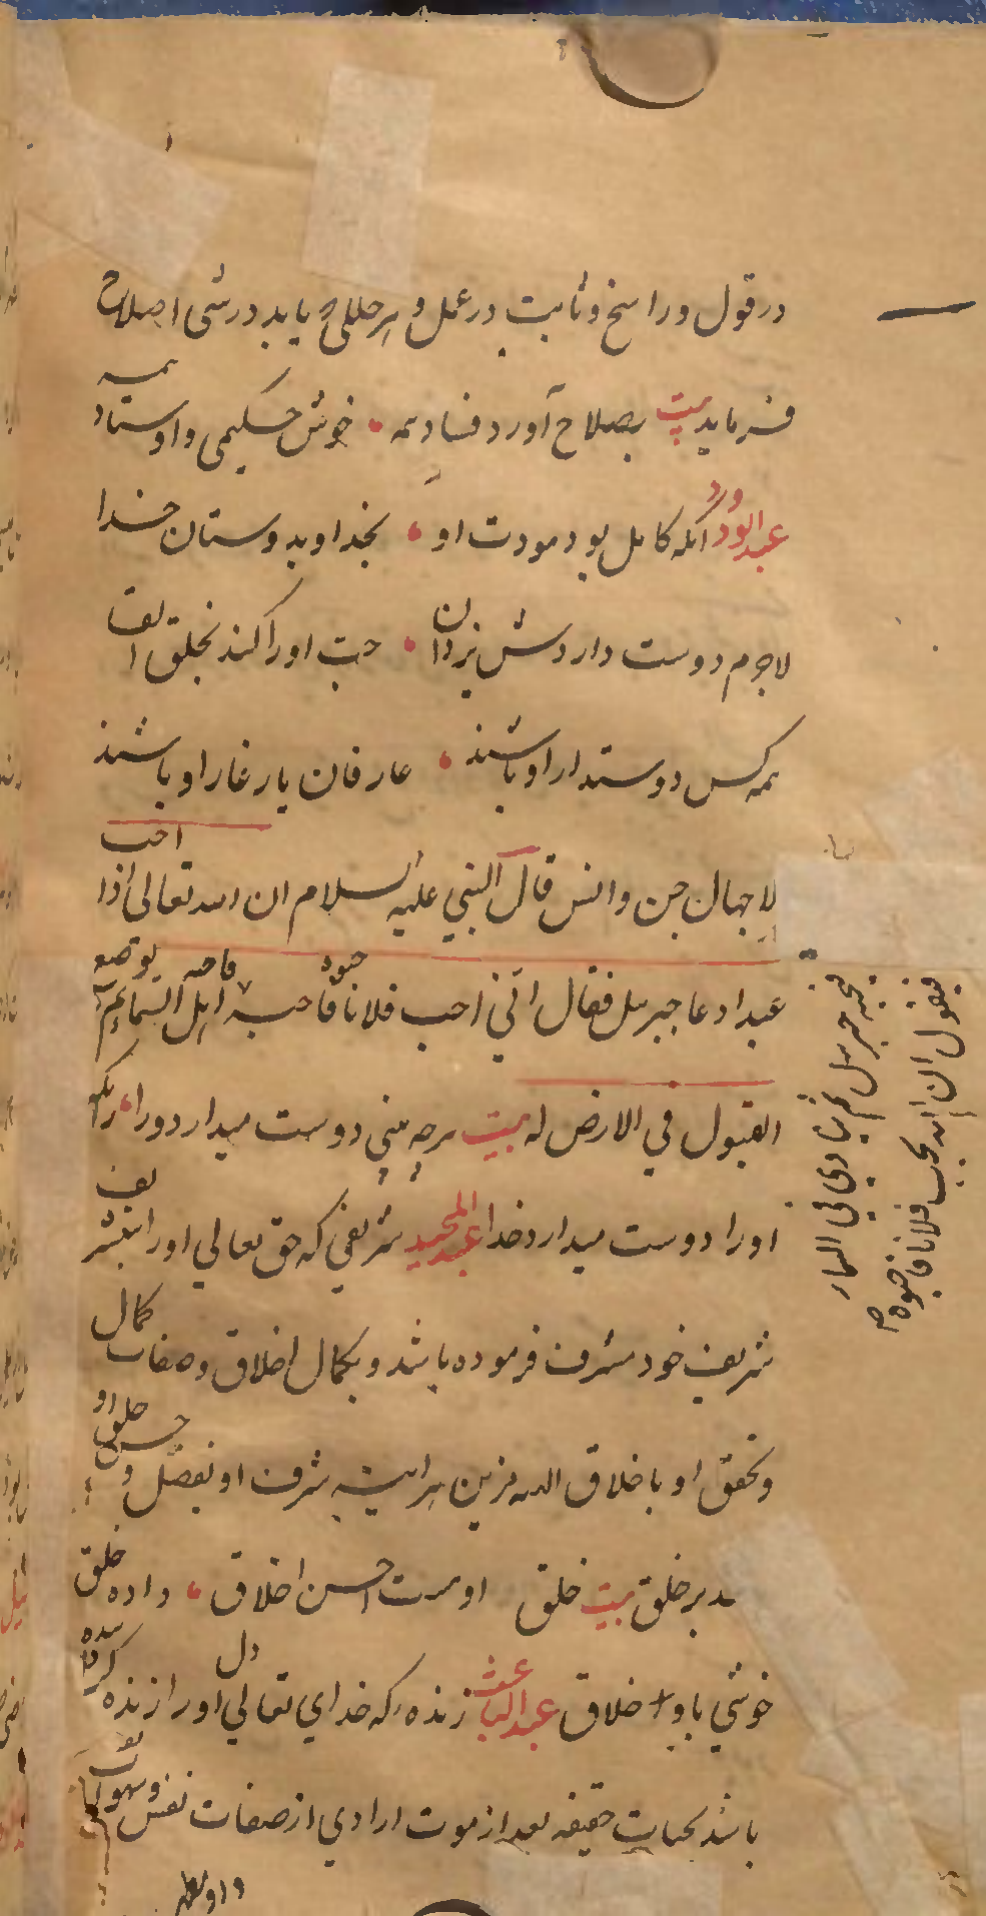 در قول و راسخ و ثابت در عمل و هر خللی که یابد در شی اصلاح
فرماید بیت بصلاح آورد فساد همه • خوش حکیمی و اوستاد همه
عبدالودود آنکه کامل بود مودت او • بخدا و بدوستان خدا
لاجرم دوست داردش یزدان • حب او را کند بخلق القا
همه کس دوستدار او باشند • عارفان یار غار او باشند
لا جهال جن و انس قال النبی علیه السلام ان الله تعالی اذا احب
عبدا دعا جبرئیل فقال انی احب فلانا فاحبه اهل السماء ثم یوضع
القبول فی الارض له بیت هر چه بینی دوست میدارد ورا •
او را دوست میدارد خدا عبدالمجید شریفی که حق تعالی او را بتشریف
شریف خود مشرف فرموده باشد و بکمال اخلاق و صفات کمال
و تحقق او باخلاق الله مزین شرف او بفضل و حسن خلق او
مدبر خلق بیت خلق اوست احسن اخلاق • داده خلق
خوشی باو اخلاق عبدالباعث زنده دل که خدای تعالی او را زنده کرده
باشد بحیات حقیقه بعد از موت ارادی از صفات نفس و شهوات
فیحبه جبرئیل ثم ینادی فی السماء
فیقول ان الله یحب فلانا فاحبوه